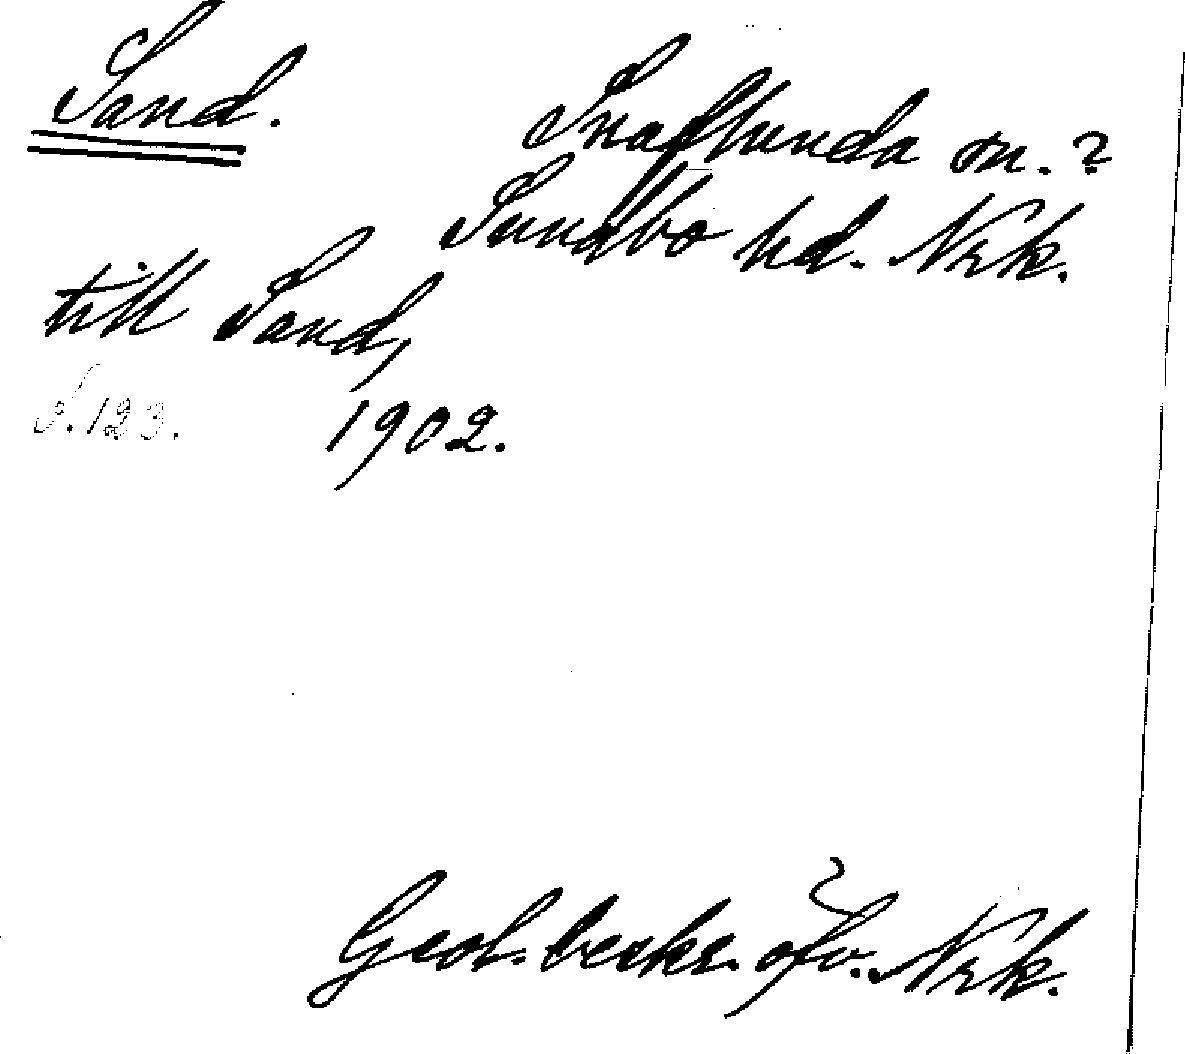 Sand.
Snaflunda sn.?
Sundbo hd. Nrk.
till Sand,
s. 123. 1902.
Geol. beskr. öfv. Nrk.